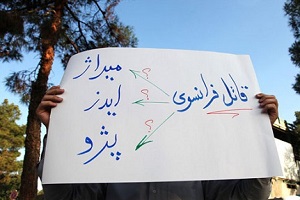 قاتل فرانسوی
؟ میراژ
؟ ایدز
؟ پژو